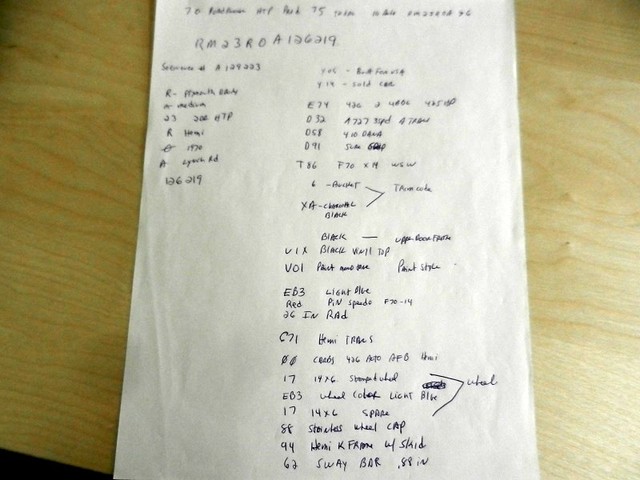 RM23R0A126219
Sequence # A 129223
Y05 - Build For USA
Y14 - Sold CAR
R- Plymouth
M medium
23 2DR HTP
R Hemi
1970
A Lynch Rd
126219
E74 426 2 4BBL 425 HP
D32 A727 3spd A TRANS
D58 410 DANA
D91 Sure
T86 F70 x 14 WSW
6 - Bucket
Trim code
XA - Charcoal
BLACK
BLACK — upper Door Frame
V1X BLACK Vinyl TOP
V01 Paint Paint Style
EB3 Light Blue
Red Pin Speedo F70-14
26 IN RAD
C71 Hemi TRANS
00 CARBS 426 AUTO AFB Hemi
17 14x6 Stamped wheel
wheel
EB3 wheel Color LIGHT Blue
17 14x6 SPARE
88 Stainless wheel CAP
94 Hemi K FRAME w/ Skid
62 SWAY BAR .88 IN